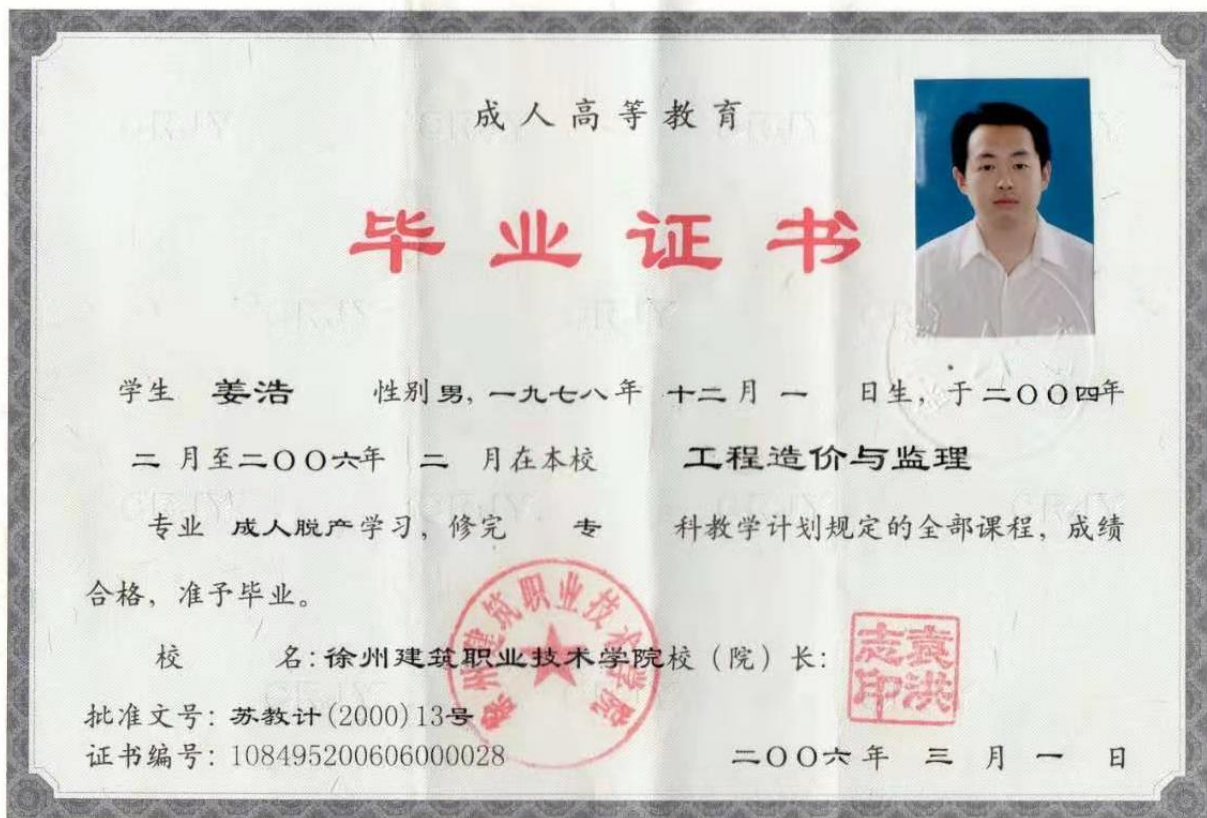 成人高等教育
毕业证书
学生 姜浩 性别 男, 一九七八年 十二月 一 日生, 于二〇〇四年
二 月至二〇〇六年 二 月在本校 工程造价与监理
专业 成人脱产学习, 修完 专 科教学计划规定的全部课程, 成绩
合格, 准予毕业。
校 名: 徐州建筑职业技术学院 校 (院) 长:
徐州建筑职业技术学院
袁洪志印
批准文号: 苏教计(2000)13号
证书编号: 108495200606000028
二〇〇六年 三 月 一 日